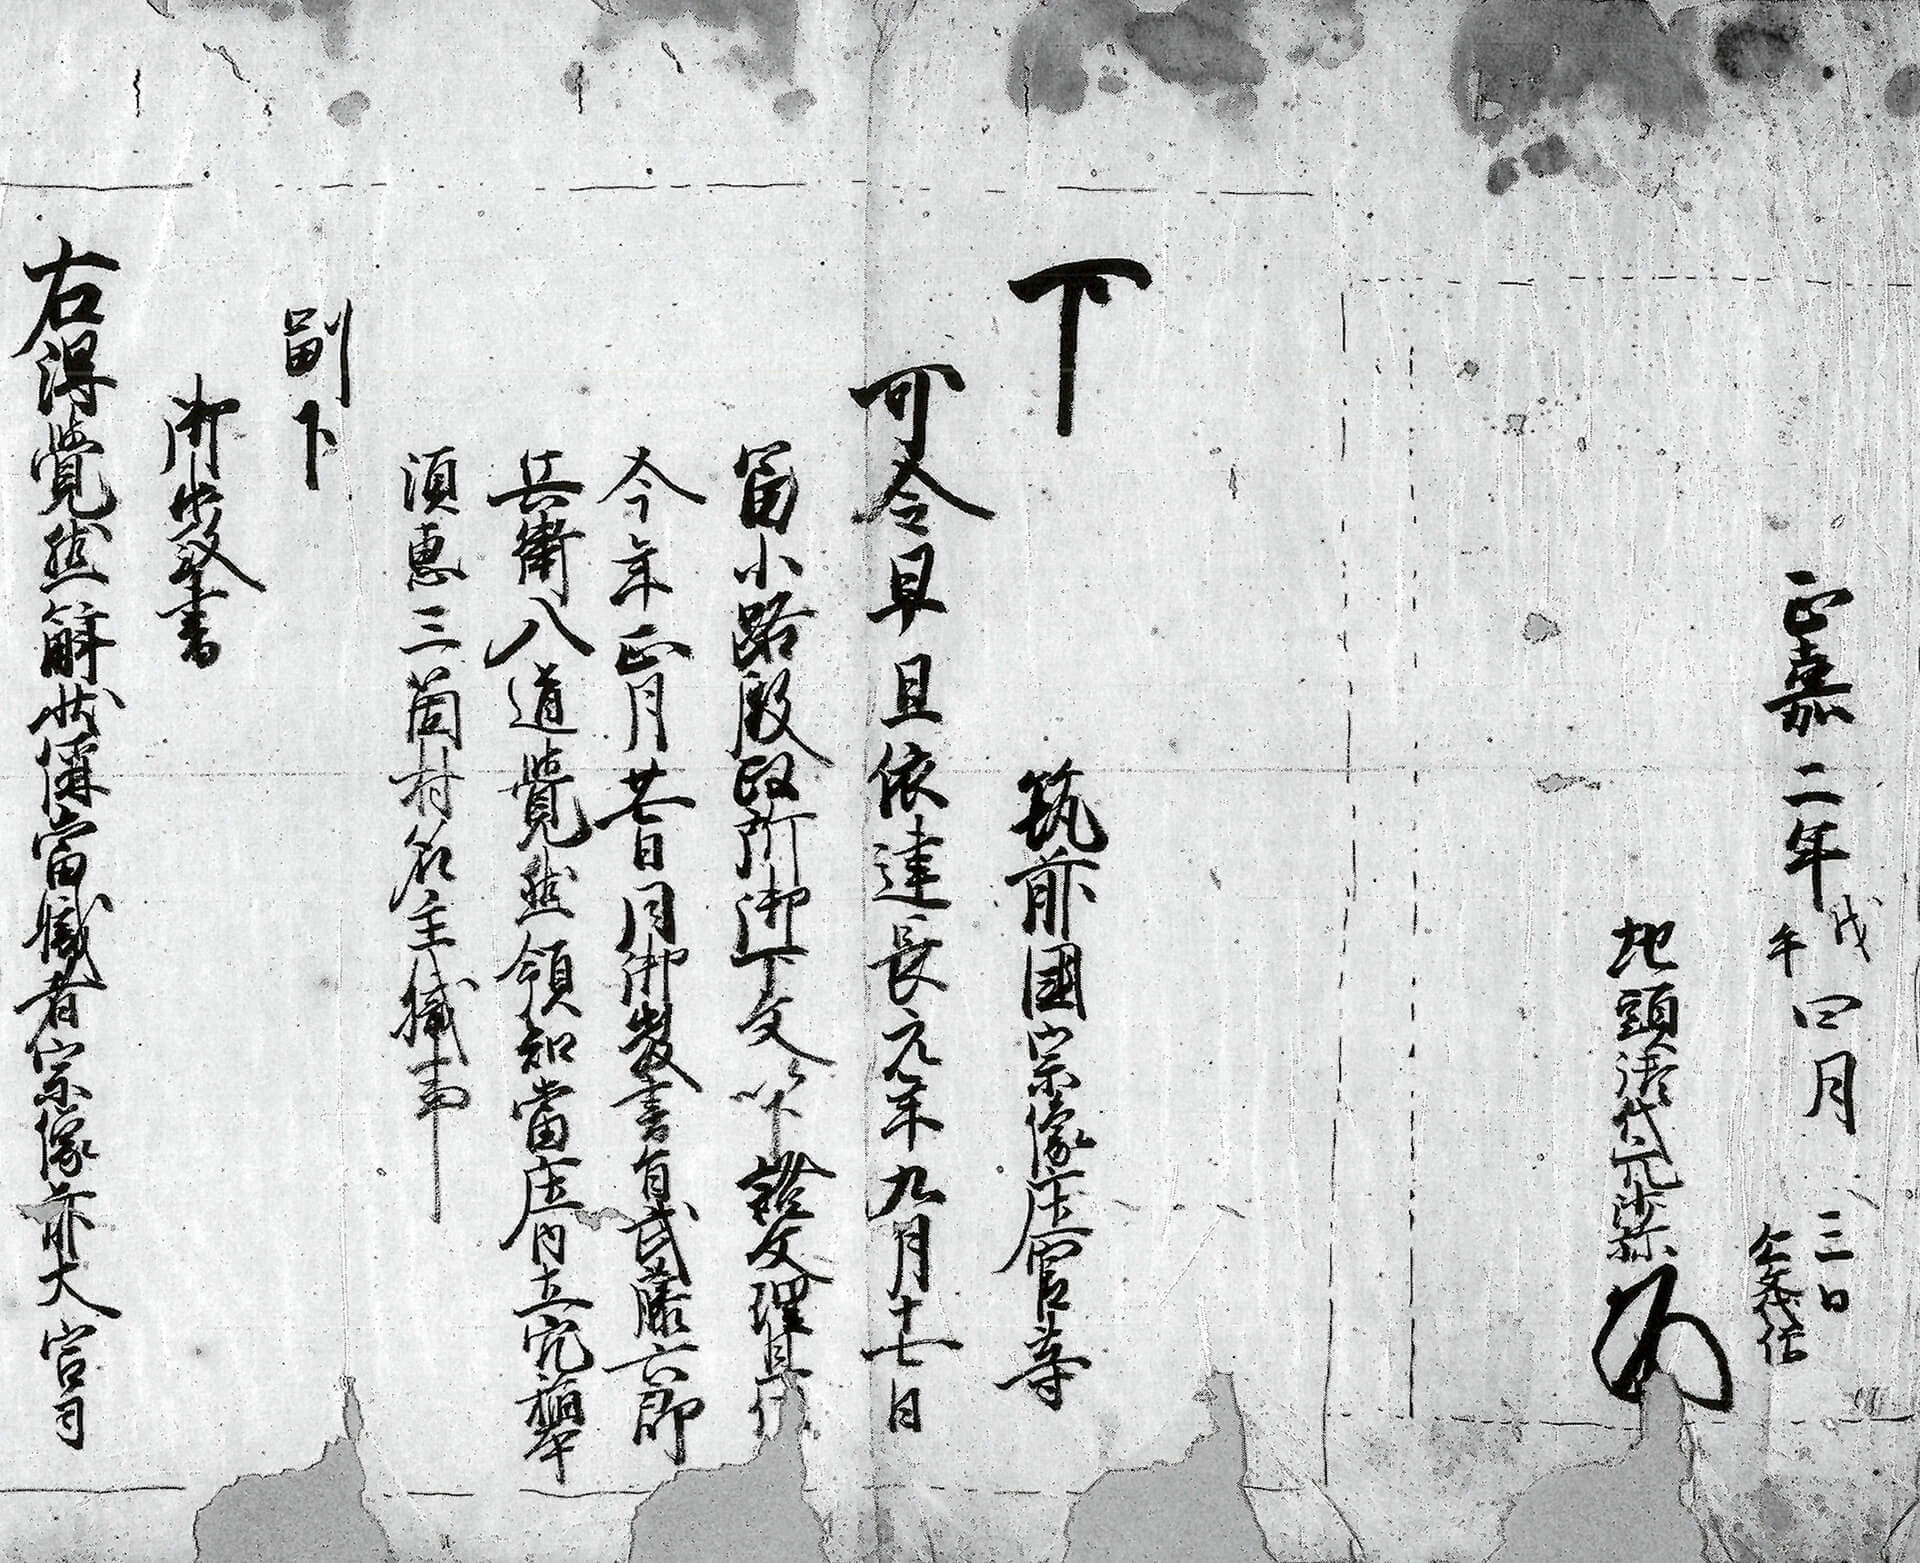 正嘉二年戊午四月三日
地頭御代
下
筑前國宗像庄官等
可令早且依建長元年九月十七日
富小路殿政所御下文以下證文理且任
今年正月廿日同御教書旨武藤六郎
兵衛入道覺然領知當庄内立穴稲畢
須惠三箇村名主職事
副下
御教書
右得覺然解状偁當職者宗像前大宮司